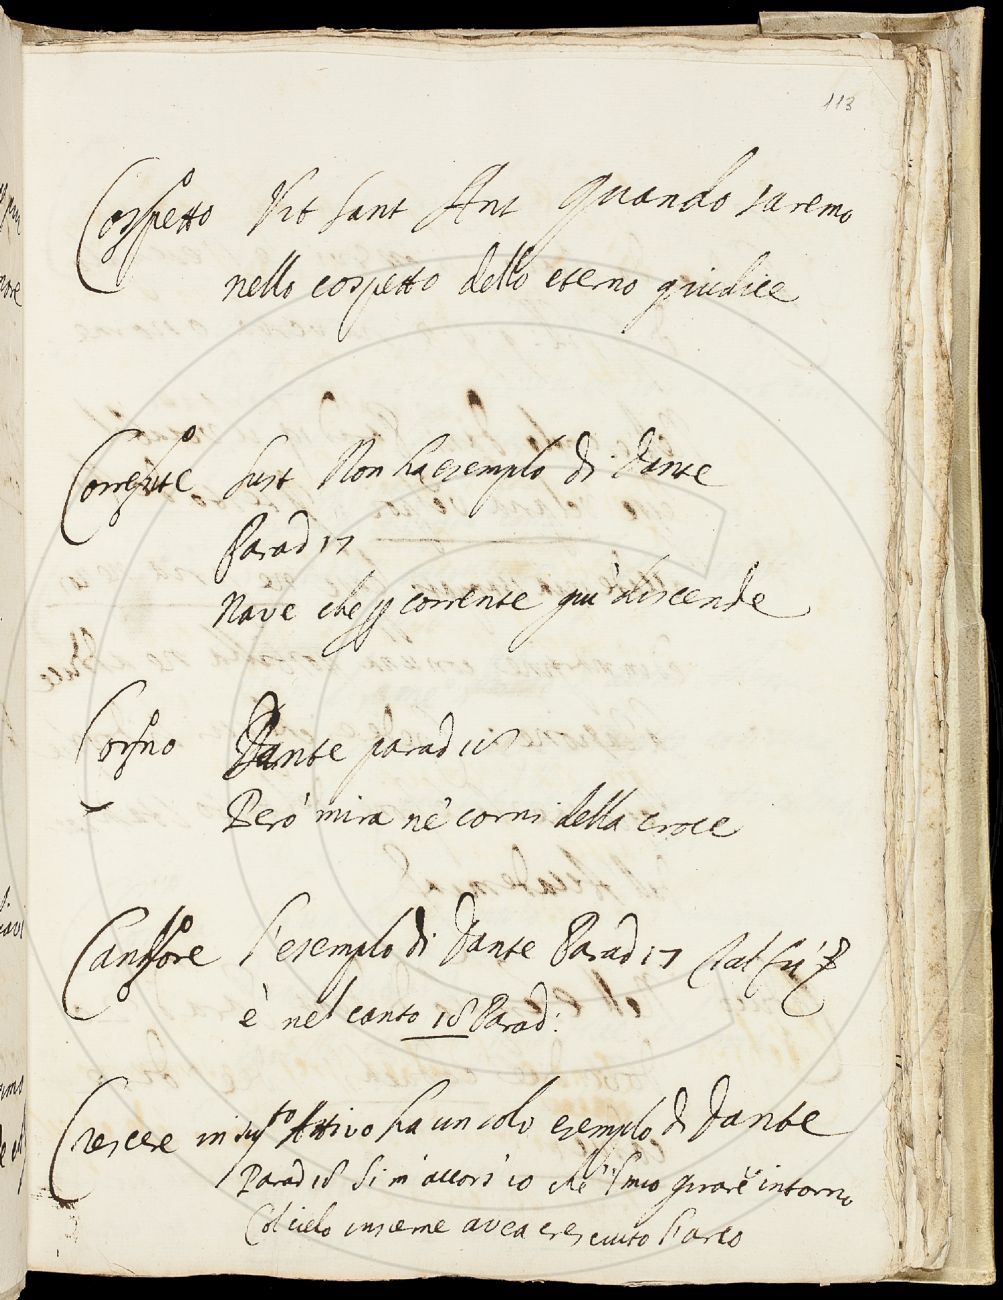 113
Cospetto Vit Sant Ant Quando saremo
nello cospetto dello eterno giudice
Corrente Sust Non ha esemplo di Dante
Parad 17
Nave che corrente giù discende
Corno Dante parad 18
Però mira ne' corni della croce
Cantore l'esemplo di Dante Parad 17
è nel canto 18 Parad:
Crescere in Attivo ha un solo esemplo di Dante
Parad 18 Si m'accors' io che 'l mio girare intorno
Col cielo insieme avea cresciuto l'arco